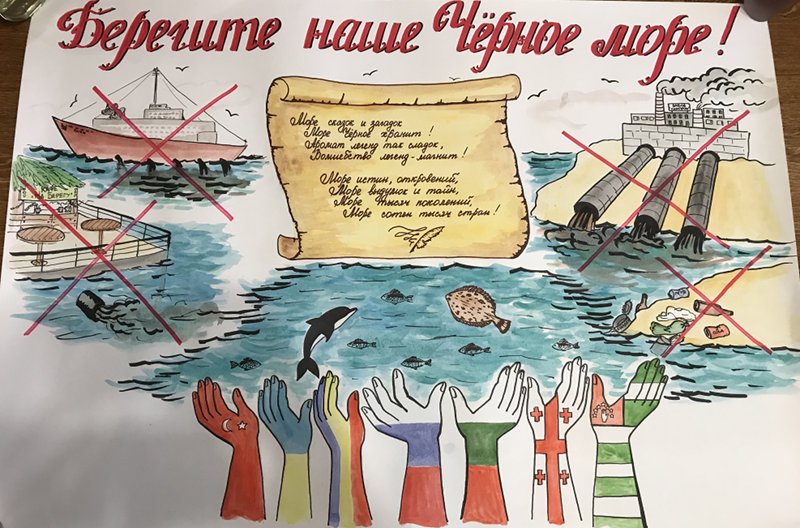 Берегите наше Чёрное море!
Море сказок и загадок
Море Чёрное хранит!
Аромат легенд так сладок,
Волшебство легенд-магнит!
Море истин, откровений,
Море выдумок и тайн,
Море тысяч поколений,
Море сотен тысяч стран!